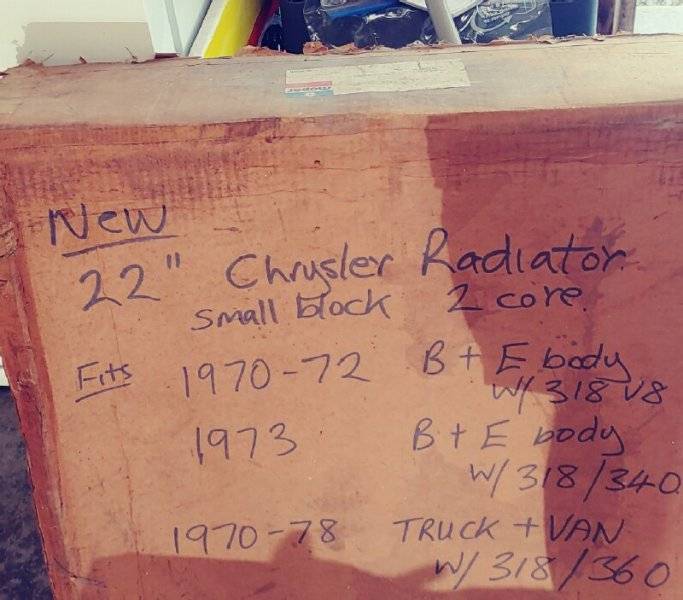 New
22" Chrysler Radiator
small block 2 core.
Fits 1970-72 B + E body
W/ 318 V8
1973 B + E body
W/ 318/340
1970-78 TRUCK + VAN
W/ 318/360